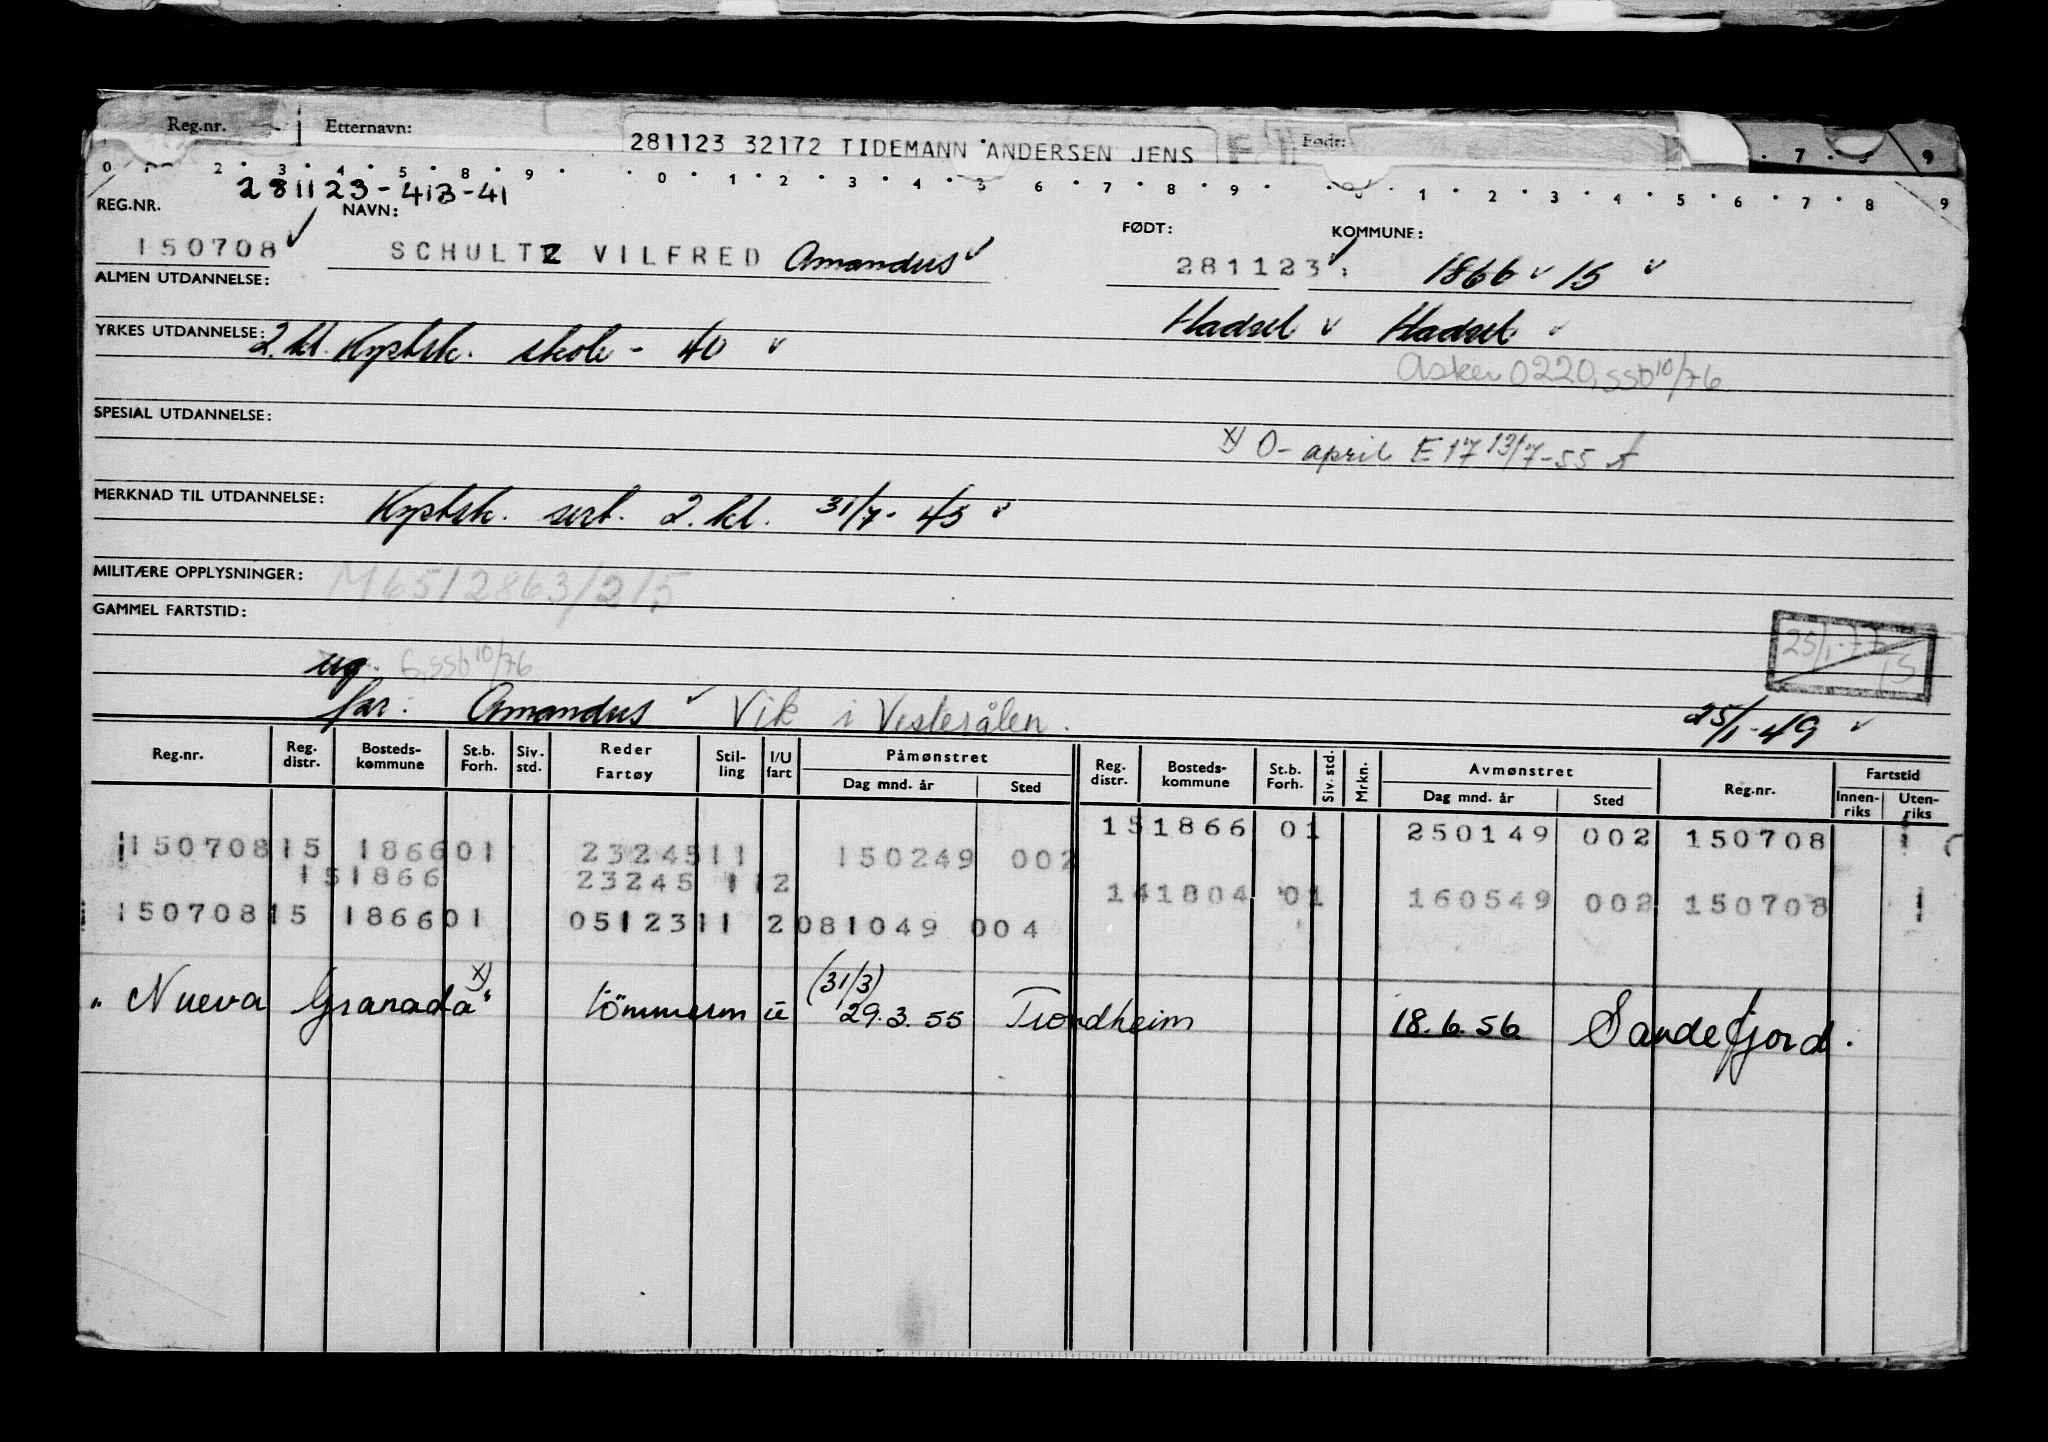 Reg.nr. Etternavn: 281123 32172 TIDEMANN ANDERSEN JENS Født:
0 2 3 4 5 8 9 0 1 2 3 4 5 6 7 8 9 0 1 2 3 4 5 6 7 8 9
281123-413-41
REG.NR. NAVN: FØDT: KOMMUNE:
150708 SCHULTZ VILFRED Amandus 281123 1866 15
ALMEN UTDANNELSE:
Hadsel Hadsel
YRKES UTDANNELSE: 2. kl. Kystsk. skole - 40
Asker 0220, SSb 10/76
SPESIAL UTDANNELSE:
x) O- april E 17 13/7-55
MERKNAD TIL UTDANNELSE: Kystsk. sert. 2. kl. 31/7-45
MILITÆRE OPPLYSNINGER: M6512863/215
GAMMEL FARTSTID:
25/1-77
ug. SSb 10/76
far: Amandus Vik i Vesterålen. 25/1-49
Reg.nr. Reg. distr. Bosteds- kommune St.b. Forh. Siv. std. Reder Fartøy Stil- ling I/U fart Påmønstret Dag mnd. år Sted Reg. distr. Bosteds- kommune St.b. Forh. Siv. std. Mrkn. Avmønstret Dag mnd. år Sted Reg.nr. Fartstid Innen- riks Uten- riks
151866 01 250149 002 150708 1
15070815 186601 2324511 150249 002
151866 23245 1 2 141804 01 160549 002 150708 1
15070815 186601 0512311 2081049 004
(31/3)
"Nueva Granada" x) tömmerm u 29.3.55 Trondheim 18.6.56 Sandefjord.